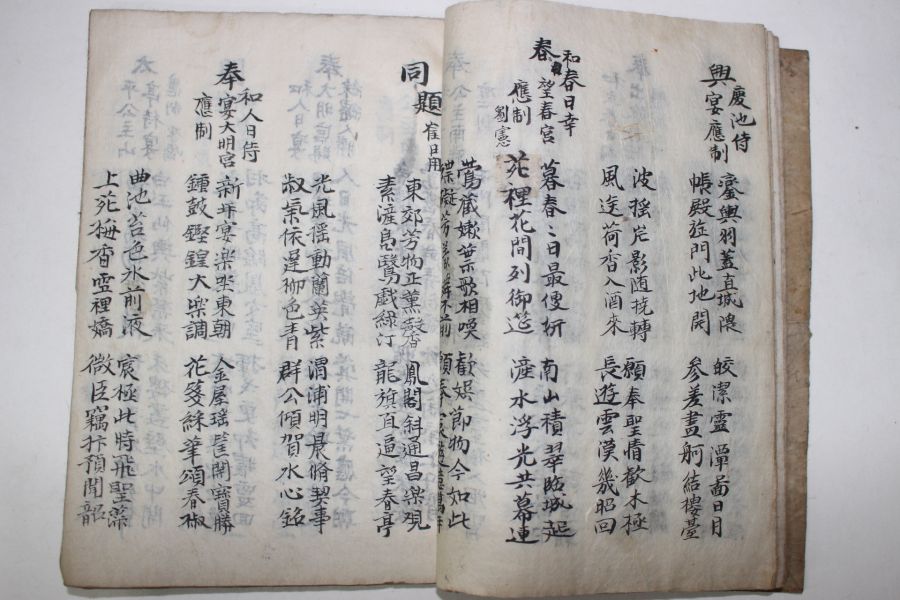 興慶池侍宴應制
鑾輿羽蓋直城隈
帳殿旌門此地開
皎潔靈潭啚日月
參差畫舸結樓臺
波搖岸影随橈轉
風送荷香入酒來
願奉聖情歡未極
長遊雲漢幾昭回
春和春日幸望春宮應制 劉憲
暮春〻日最便妍
苑裡花間列御筵
南山積翠臨城起
滻水浮光共幕連
鶯蔵嫩葉歌相喚
蝶礙芳叢舞不前
歡娱節物今如此
願奉
同題 崔日用
東郊芳物正薰馨
素滻鳧鷖戲緑汀
鳳閣斜通昌樂观
龍旗直逼望春亭
光風搖動蘭英紫
叔氣依遲柳色青
渭浦明晨脩禊事
群公傾賀水心銘
奉和人日侍宴大明宮應制
新年宴楽坐東朝
鍾鼓鏗鍠大楽調
金屋瑶筐開寶勝
花箋綵筆頌春椒
曲池苔色氷前液
上苑梅香雪裡嬌
宸極此時飛聖藻
微臣竊抃預聞韶